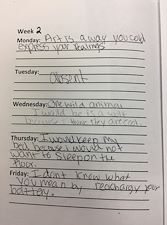 Week 2
Monday: Art is a way you could
express your feelings
Tuesday:
absent
Wednesday: One wild animal
I would be is a
because I think they are cool.
Thursday: I would keep my
bed because I would not
want to sleep on the
floor.
Friday: I don't know what
you mean by recharge your
battery.